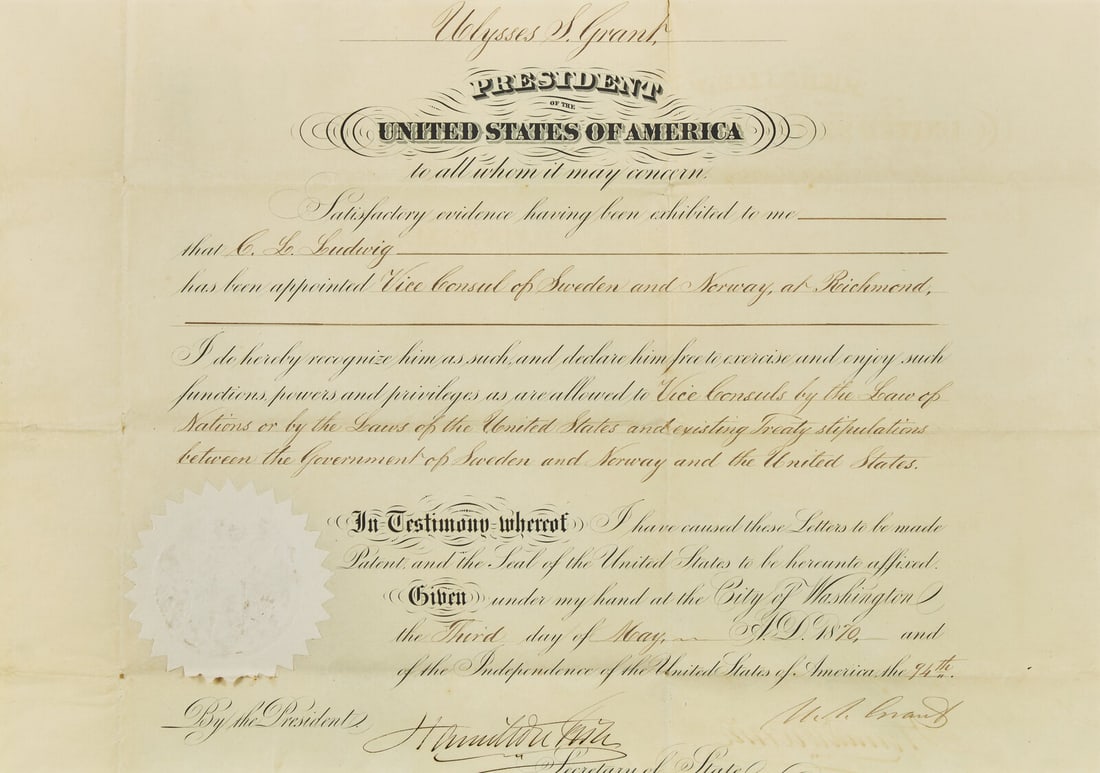 Ulysses S. Grant,
PRESIDENT
OF THE
UNITED STATES OF AMERICA
to all whom it may concern.
Satisfactory evidence having been exhibited to me
that C. L. Ludwig
has been appointed Vice Consul of Sweden and Norway, at Richmond,
I do hereby recognize him as such, and declare him free to exercise and enjoy such
functions, powers and privileges as are allowed to Vice Consuls by the Law of
Nations or by the Laws of the United States and existing Treaty stipulations
between the Government of Sweden and Norway and the United States.
In Testimony whereof I have caused these Letters to be made
Patent, and the Seal of the United States to be hereunto affixed.
Given under my hand at the City of Washington
the Third day of May, A.D. 1870, and
of the Independence of the United States of America, the 94th.
By the President
Hamilton Fish
U. S. Grant
Secretary of State